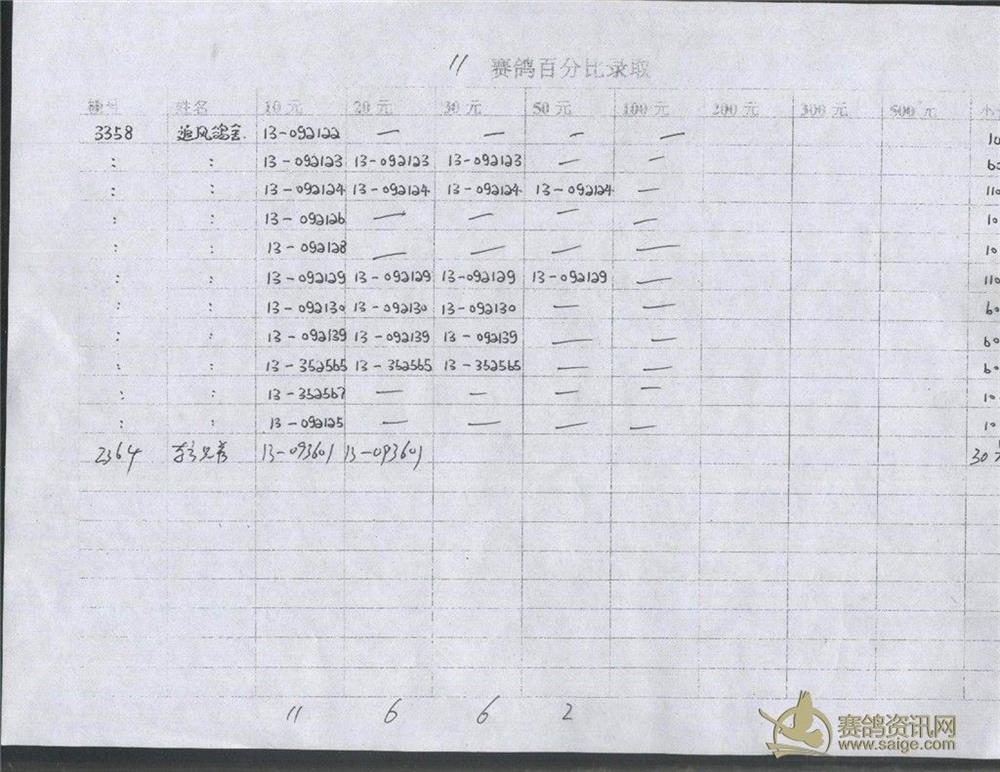 11 赛鸽百分比录取
棚号 姓名 10元 20元 30元 50元 100元 200元 300元 500元 小
3358 追风鸽舍. 13-092122 — — — — 10
: : 13-092123 13-092123 13-092123 — — 60
: : 13-092124 13-092124 13-092124 13-092124 — 110
: : 13-092126 — — — — 10
: : 13-092128 — — — — 10
: : 13-092129 13-092129 13-092129 13-092129 — 110
: : 13-092130 13-092130 13-092130 — — 60
: : 13-092139 13-092139 13-092139 — — 60
: : 13-352565 13-352565 13-352565 — — 60
: : 13-352567 — — — — 10
: : 13-092125 — — — — 10
2364 13-093601 13-093601 30
11 6 6 2
赛鸽资讯网
www.saige.com